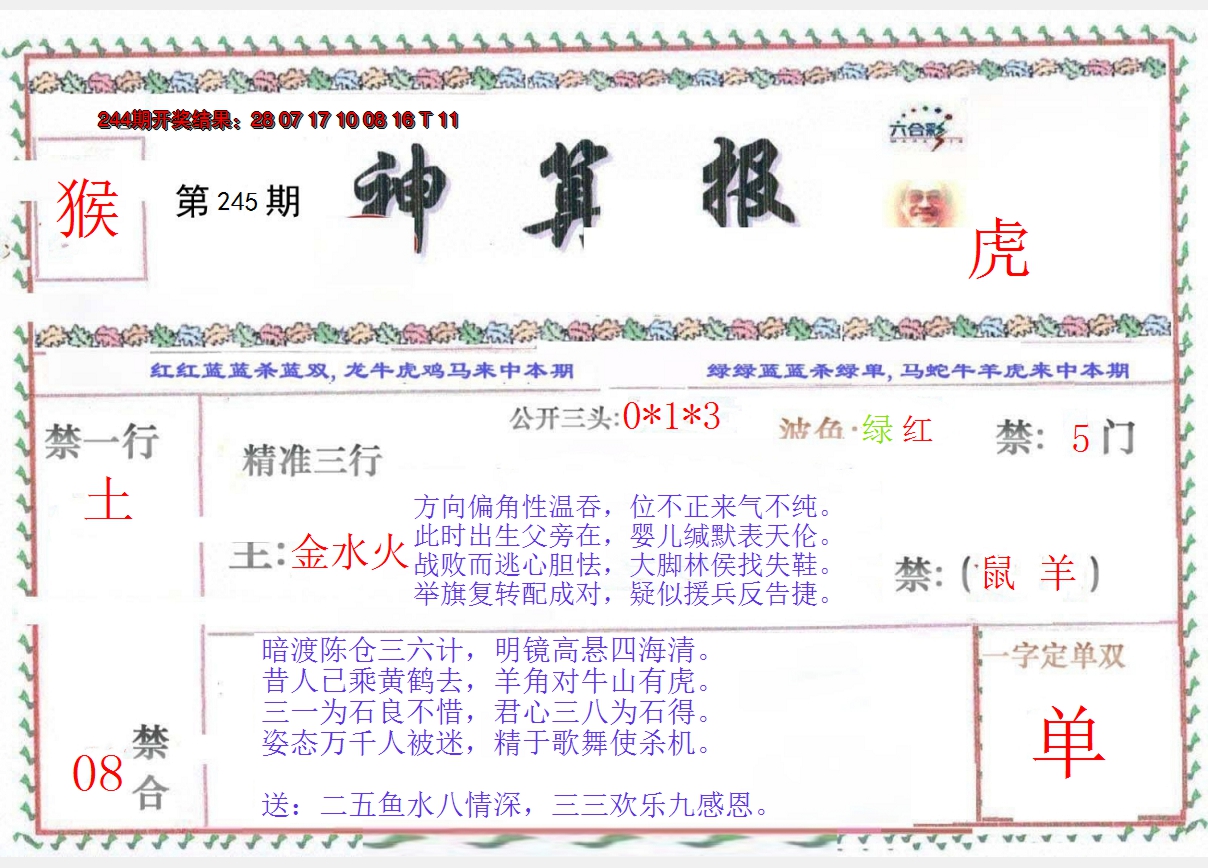 244期开奖结果：28 07 17 10 08 16 T 11
六合彩
猴
第 245 期
神算报
虎
红红蓝蓝杀蓝双, 龙牛虎鸡马来中本期
绿绿蓝蓝杀绿单, 马蛇牛羊虎来中本期
禁一行
土
精准三行
主:金水火
公开三头:0*1*3
波色:绿 红
禁: 5 门
方向偏角性温吞，位不正来气不纯。
此时出生父旁在，婴儿缄默表天伦。
战败而逃心胆怯，大脚林侯找失鞋。
举旗复转配成对，疑似援兵反告捷。
禁: (鼠 羊)
08
禁合
暗渡陈仓三六计，明镜高悬四海清。
昔人已乘黄鹤去，羊角对牛山有虎。
三一为石良不惜，君心三八为石得。
姿态万千人被迷，精于歌舞使杀机。
送：二五鱼水八情深，三三欢乐九感恩。
一字定单双
单